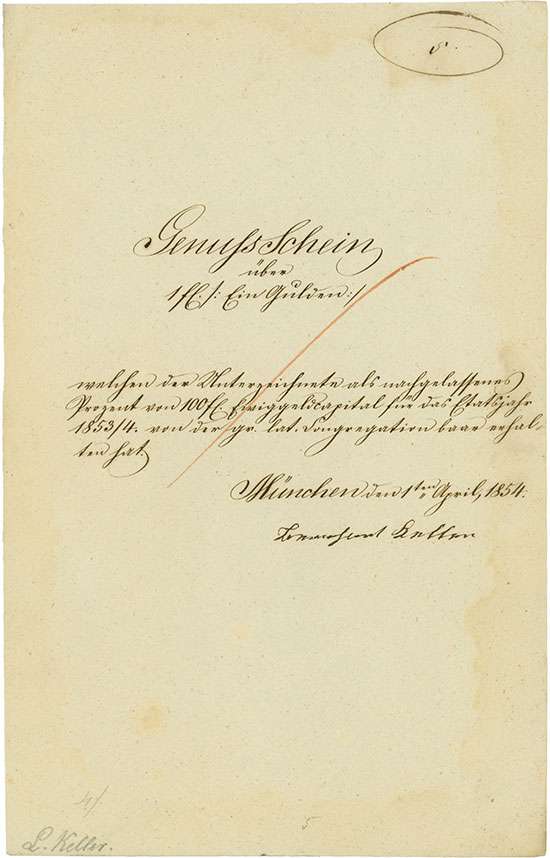 5.
Genuss Schein
über
1 fl: /: Ein Gulden :/
welchen der Unterzeichnete als nachgelassenes
Prozent von 100 fl. Ewiggeldcapital für das Etatsjahr
1853/4. von der gr. lat. Congregation baar erhal-
ten hat.
München den 1ten April, 1854.
Keller
4/.
5
L. Keller.